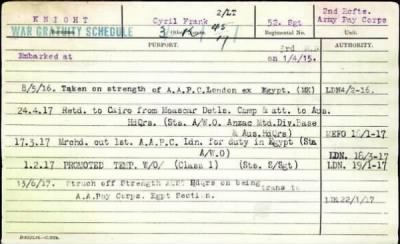 KNIGHT Cyril Frank 2/LT 52. Sgt 2nd Rcfts. Army Pay Corps
WAR GRATUITY SCHEDULE
PURPORT. Regimental No. Unit.
Embarked at on 1/4/15.
8/5/16. Taken on strength of A.A.P.C. London ex Egypt. (MK) LDN4/2-16.
24.4.17 Retd. to Cairo from Moascar Detls. Camp & att. to Aus.
HdQrs. (Sts. A/W.O. Anzac Mtd.Div.Base
& Aus.HdQrs) MEFO 1-17
17.3.17 Mrchd. out 1st. A.A.P.C. Ldn. for duty in Egypt (Sts
A/W.O) LDN. 18/3-17
1.2.17 PROMOTED TEMP. W/O/ (Class 1) (Sts. S/Sgt) LDN. 19/1-17
Struch off Strength HdQrs on being
trans to
A.A.Pay Corps. Egpt Section. 22/1/17